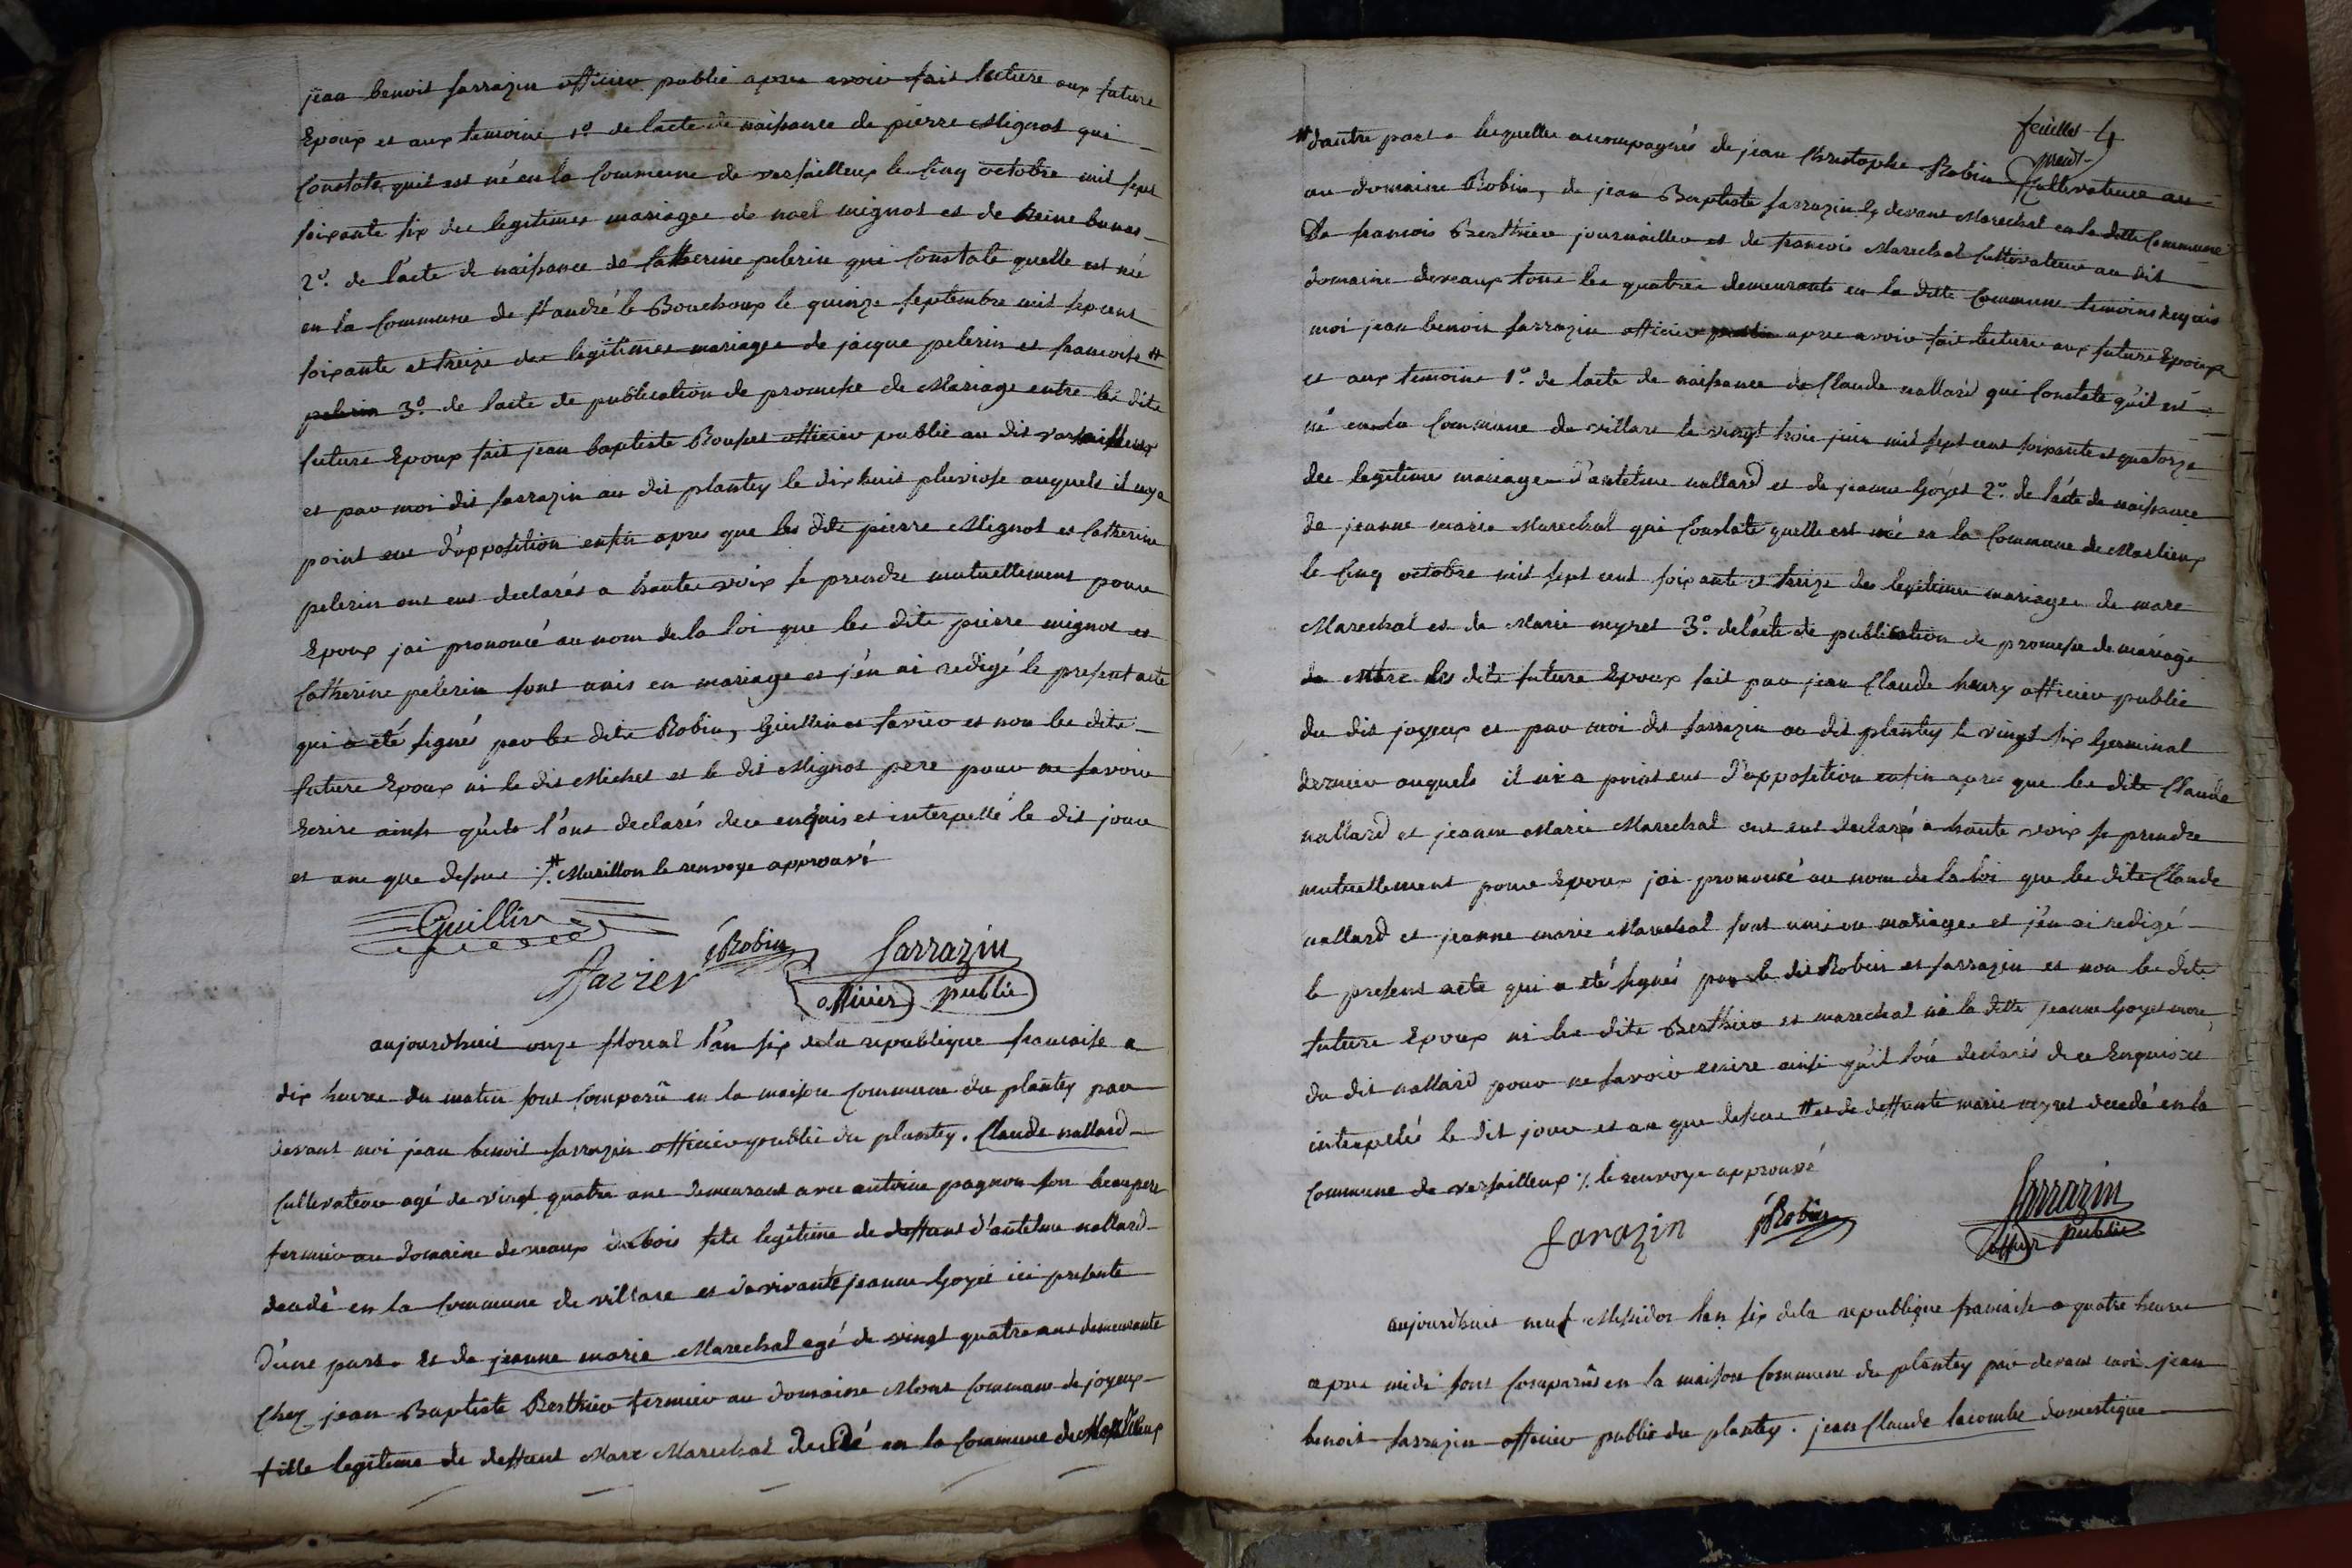 jean benoit sarrazin officier public apres avoir fait lecture aux futurs
Epoux et aux temoins 1º de lacte de naissance de pierre Mignot qui
Constate quil est né en la Commune de versailleux le cinq octobre mil sept
soixante six des legitimes mariages de noel mignot et de Reine
2º. de lacte de naissance de Catherine pelerin qui Constate quelle est née
en la Commune de st andré le Bouchoux le quinze septembre mil sept cent
soixante et treize des legitimes mariages de jacque pelerin et francoise #
pelerin 3º. de lacte de publication de promesse de Mariage entre les dits
futurs Epoux fait jean baptiste officier public au dit versailleux
et par moi dit sarrazin au dit plantey le dix huit pluviose auquels il ny a
point eue d'opposition enfin apres que les dits pierre Mignot et Catherine
pelerin ont eus declarés a haute voix se prendre mutuellement pour
Epoux jai prononcé au nom de la loi que les dits pierre mignot et
Catherine pelerin sont unis en mariage et j'en ai redigé le present acte
qui a été signés par les dits Robin, Guillin et favier et non les dits
futurs Epoux ni le dit Michet et le dit Mignot pere pour ne savoir
Ecrire ainsi qu'ils l'ont declarés de ce enquis et interpellé le dit jour
et an que dessus ·/. # Murillon le renvoye approuvé
Guillin
favier jRobin Sarrazin
officier public
aujourdhuit onze floreal l'an six de la republique francaise a
dix heures du matin sont Comparû en la maison Commune du plantey par
devant moi jean benoit sarrazin officier public du plantey. Claude nallard
Cultivateur agé de vingt quatre ans demeurant avec antoine pagnon son beaupere
fermier au domaine deveaux du bois fils legitime de deffunt d'antelme nallard
decedé en la Commune de villars et de vivante jeanne Goyet ici presente
d'une part. et de jeanne marie Marechal agé de vingt quatre ans demeurante
Chez jean Baptiste Berthier fermier au domaine Mont Commune de joyeux
fille legitime de deffunt Marc Marechal decedé en la Commune de
feuillet 4
# d'autre part. lesquelles accompagnés de jean Christophe Robin Cultivateur au
au domaine Robin, de jean Baptiste sarrazin cy devant Marechal en la ditte Commune
De francois Berthier journaillier et de francois Marechal Cultivateur au dit
domaine deveaux tous les quatres demeurants en la ditte Commune temoins
moi jean benoit sarrazin officier public apres avoir fait lecture aux futurs Epoux
et aux temoins 1º. de lacte de naissance de Claude nallard qui Constate qu'il est
né en la Commune de villars le vingt trois juin mil sept cent soixante et quatorze
des legitimes mariages d'antelme nallard et de jeanne Goyet 2º. de l'acte de naissance
de jeanne marie Marechal qui Constate quelle est née en la Commune de Marlieux
le cinq octobre mil sept cent soixante et treize des legitimes mariages de marc
Marechal et de Marie meyret 3º. de l'acte de publication de promesse de mariage
les dits futurs Epoux fait par jean Claude henry officier public
du dit joyeux et par moi dit sarrazin au dit plantey le vingt six Germinal
dernier auquels il ni a point eus d'opposition enfin apres que les dits Claude
nallard et jeanne Marie Marechal ont eus declarés a haute voix se prendre
mutuellement pour Epoux jai prononcé au nom de la loi que les dits Claude
nallard et jeanne marie Marechal sont unis en mariage et j'en ai redigé
le present acte qui a été signés par le dit Robin et sarrazin et non les dits
futurs Epoux ni les dits Berthier et marechal ni la ditte jeanne Goyet mere
du dit nallard pour ne savoir ecrire ainsi qu'il l'on declarés de ce Enquis et
interpellés le dit jour et an que dessus # et de deffunte marie meyret decedé en la
Commune de versailleux ·/. le renvoye approuvé
Sarazin jRobin Sarrazin
offier public
aujourd'huit neuf Messidor l'an six de la republique francaise a quatre heures
apres midi sont Comparûs en la maison Commune du plantey par devant moi jean
benoit sarrazin officier public du plantey. jean Claude lacombe domestique